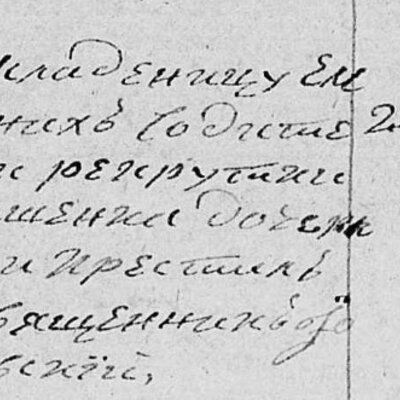 младеницу ем
нихъ родите
и рекрутки
шенка дочерк
и крестилъ
вященникъ
вский,